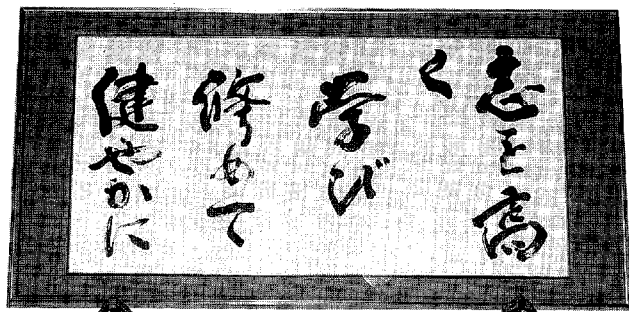 志を高
く
学び
修めて
健やかに